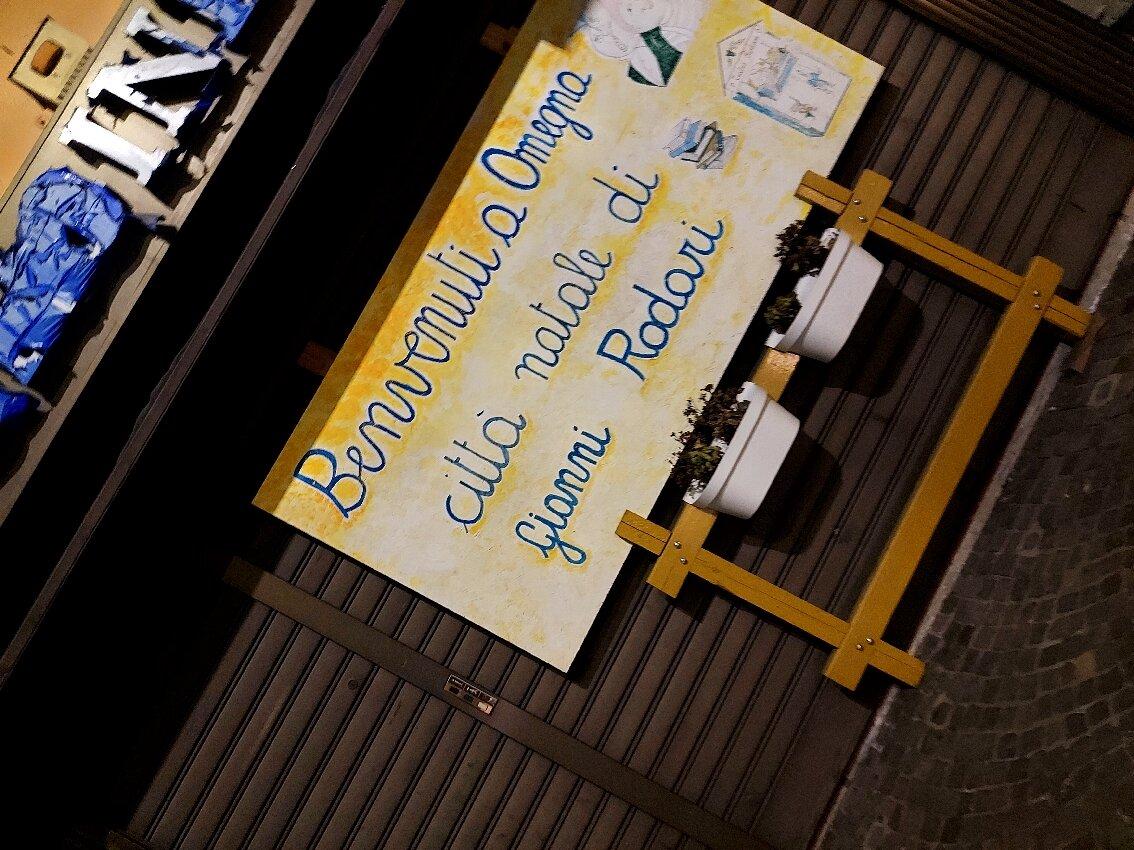 Benvenuti a Omegna
città natale di
Gianni Rodari
IN